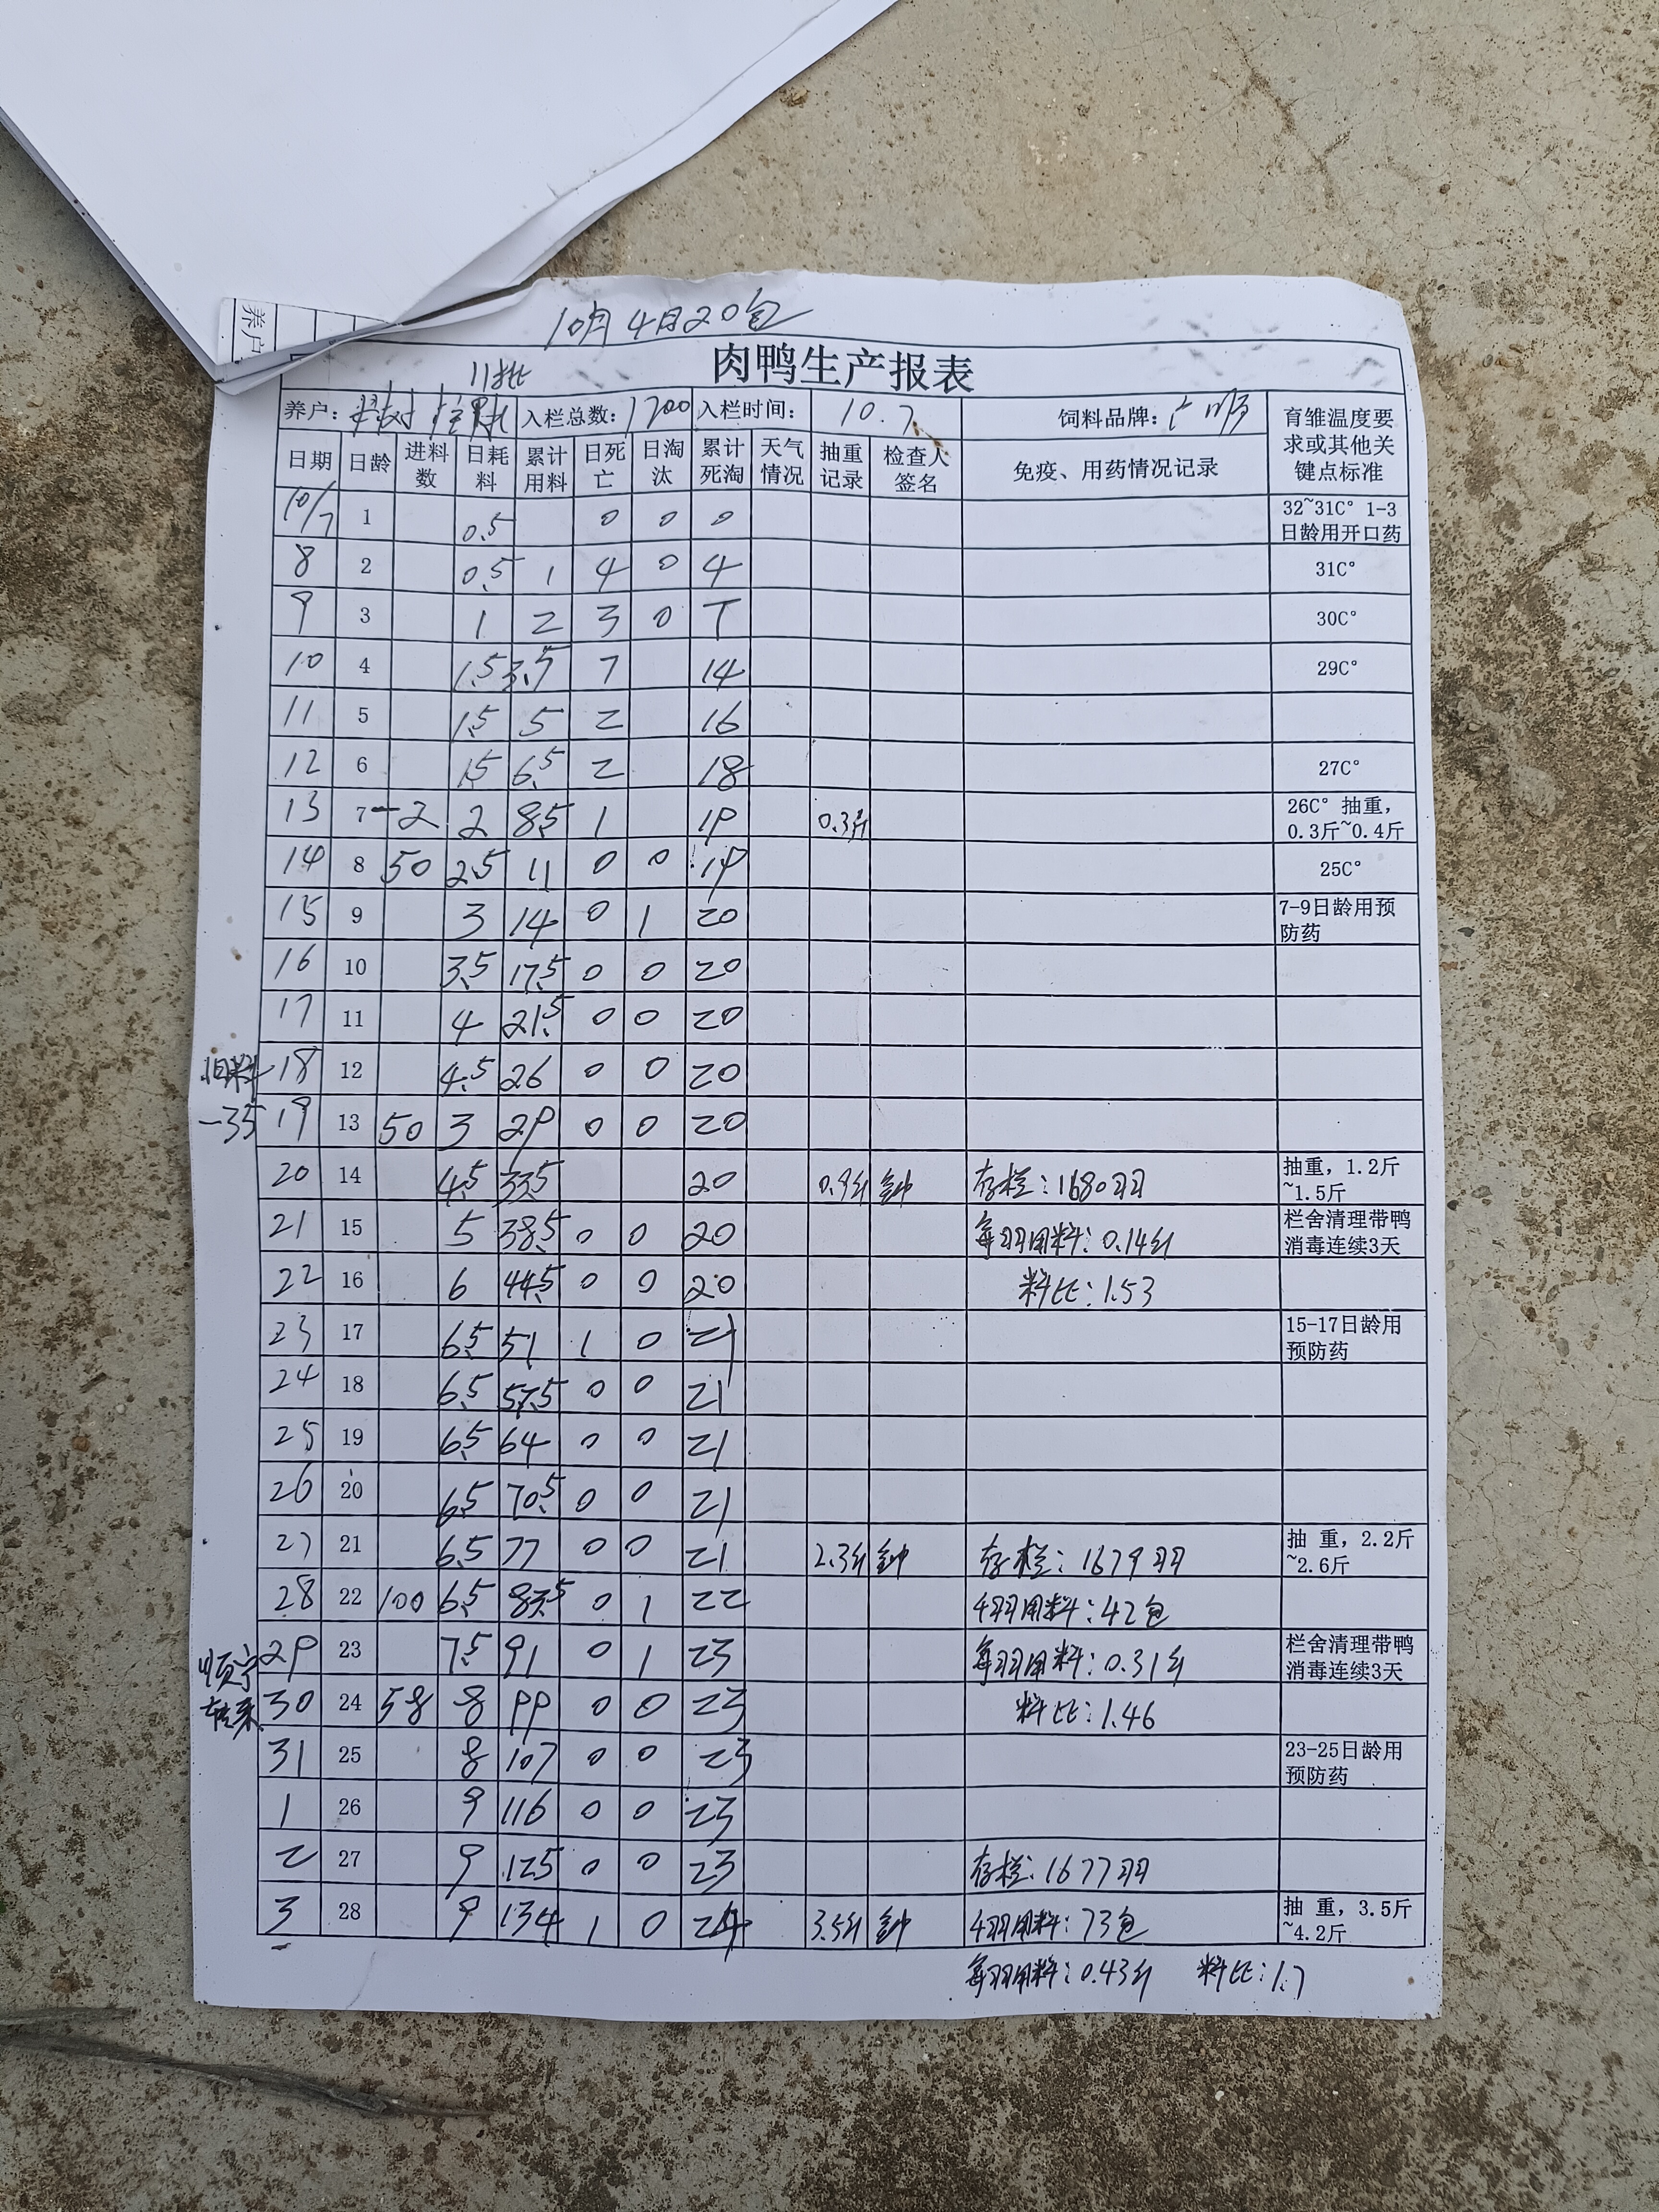 养户
10月4日20包
肉鸭生产报表
11批
养户： 入栏总数：1700 入栏时间： 10.7 饲料品牌：广顺 育雏温度要求或其他关键点标准
日期 日龄 进料数 日耗料 累计用料 日死亡 日淘汰 累计死淘 天气情况 抽重记录 检查人签名 免疫、用药情况记录
10/7 1 0.5 0 0 0 32~31C° 1-3日龄用开口药
8 2 0.5 1 4 0 4 31C°
9 3 1 2 3 0 7 30C°
10 4 1.5 3.5 7 14 29C°
11 5 1.5 5 2 16
12 6 1.5 6.5 2 18 27C°
13 7 -2 2 8.5 1 19 0.3斤 26C° 抽重，0.3斤~0.4斤
14 8 50 2.5 11 0 0 19 25C°
15 9 3 14 0 1 20 7-9日龄用预防药
16 10 3.5 17.5 0 0 20
17 11 4 21.5 0 0 20
旧料 18 12 4.5 26 0 0 20
-35 19 13 50 3 29 0 0 20
20 14 4.5 33.5 20 0.9斤 钟 存栏：1680羽 抽重，1.2斤~1.5斤
21 15 5 38.5 0 0 20 每羽用料：0.14斤 栏舍清理带鸭消毒连续3天
22 16 6 44.5 0 0 20 料比：1.53
23 17 6.5 51 1 0 21 15-17日龄用预防药
24 18 6.5 57.5 0 0 21
25 19 6.5 64 0 0 21
26 20 6.5 70.5 0 0 21
27 21 6.5 77 0 0 21 2.3斤 钟 存栏：1679羽 抽 重，2.2斤~2.6斤
28 22 100 6.5 83.5 0 1 22 4羽用料：42包
顺宁 29 23 7.5 91 0 1 23 每羽用料：0.31斤 栏舍清理带鸭消毒连续3天
转来 30 24 58 8 99 0 0 23 料比：1.46
31 25 8 107 0 0 23 23-25日龄用预防药
1 26 9 116 0 0 23
2 27 9 125 0 0 23 存栏：1677羽
3 28 9 134 1 0 24 3.5斤 钟 4羽用料：73包 抽 重，3.5斤~4.2斤
每羽用料：0.43斤 料比：1.7